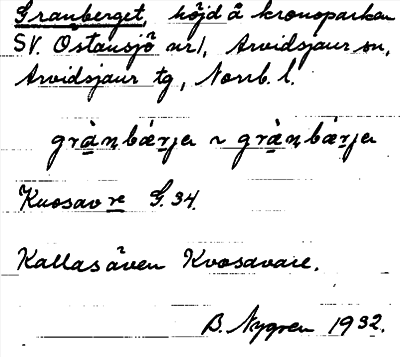 Granberget, höjd å kronoparken
SV. Östansjö nr 1, Arvidsjaur sn,
Arvidsjaur tg, Norrb. l.
grànbǽrjer ~ grànbǽrjer
Kuosavare G.34.
Kallas även Kvosavare.
B. Nygren 1932.